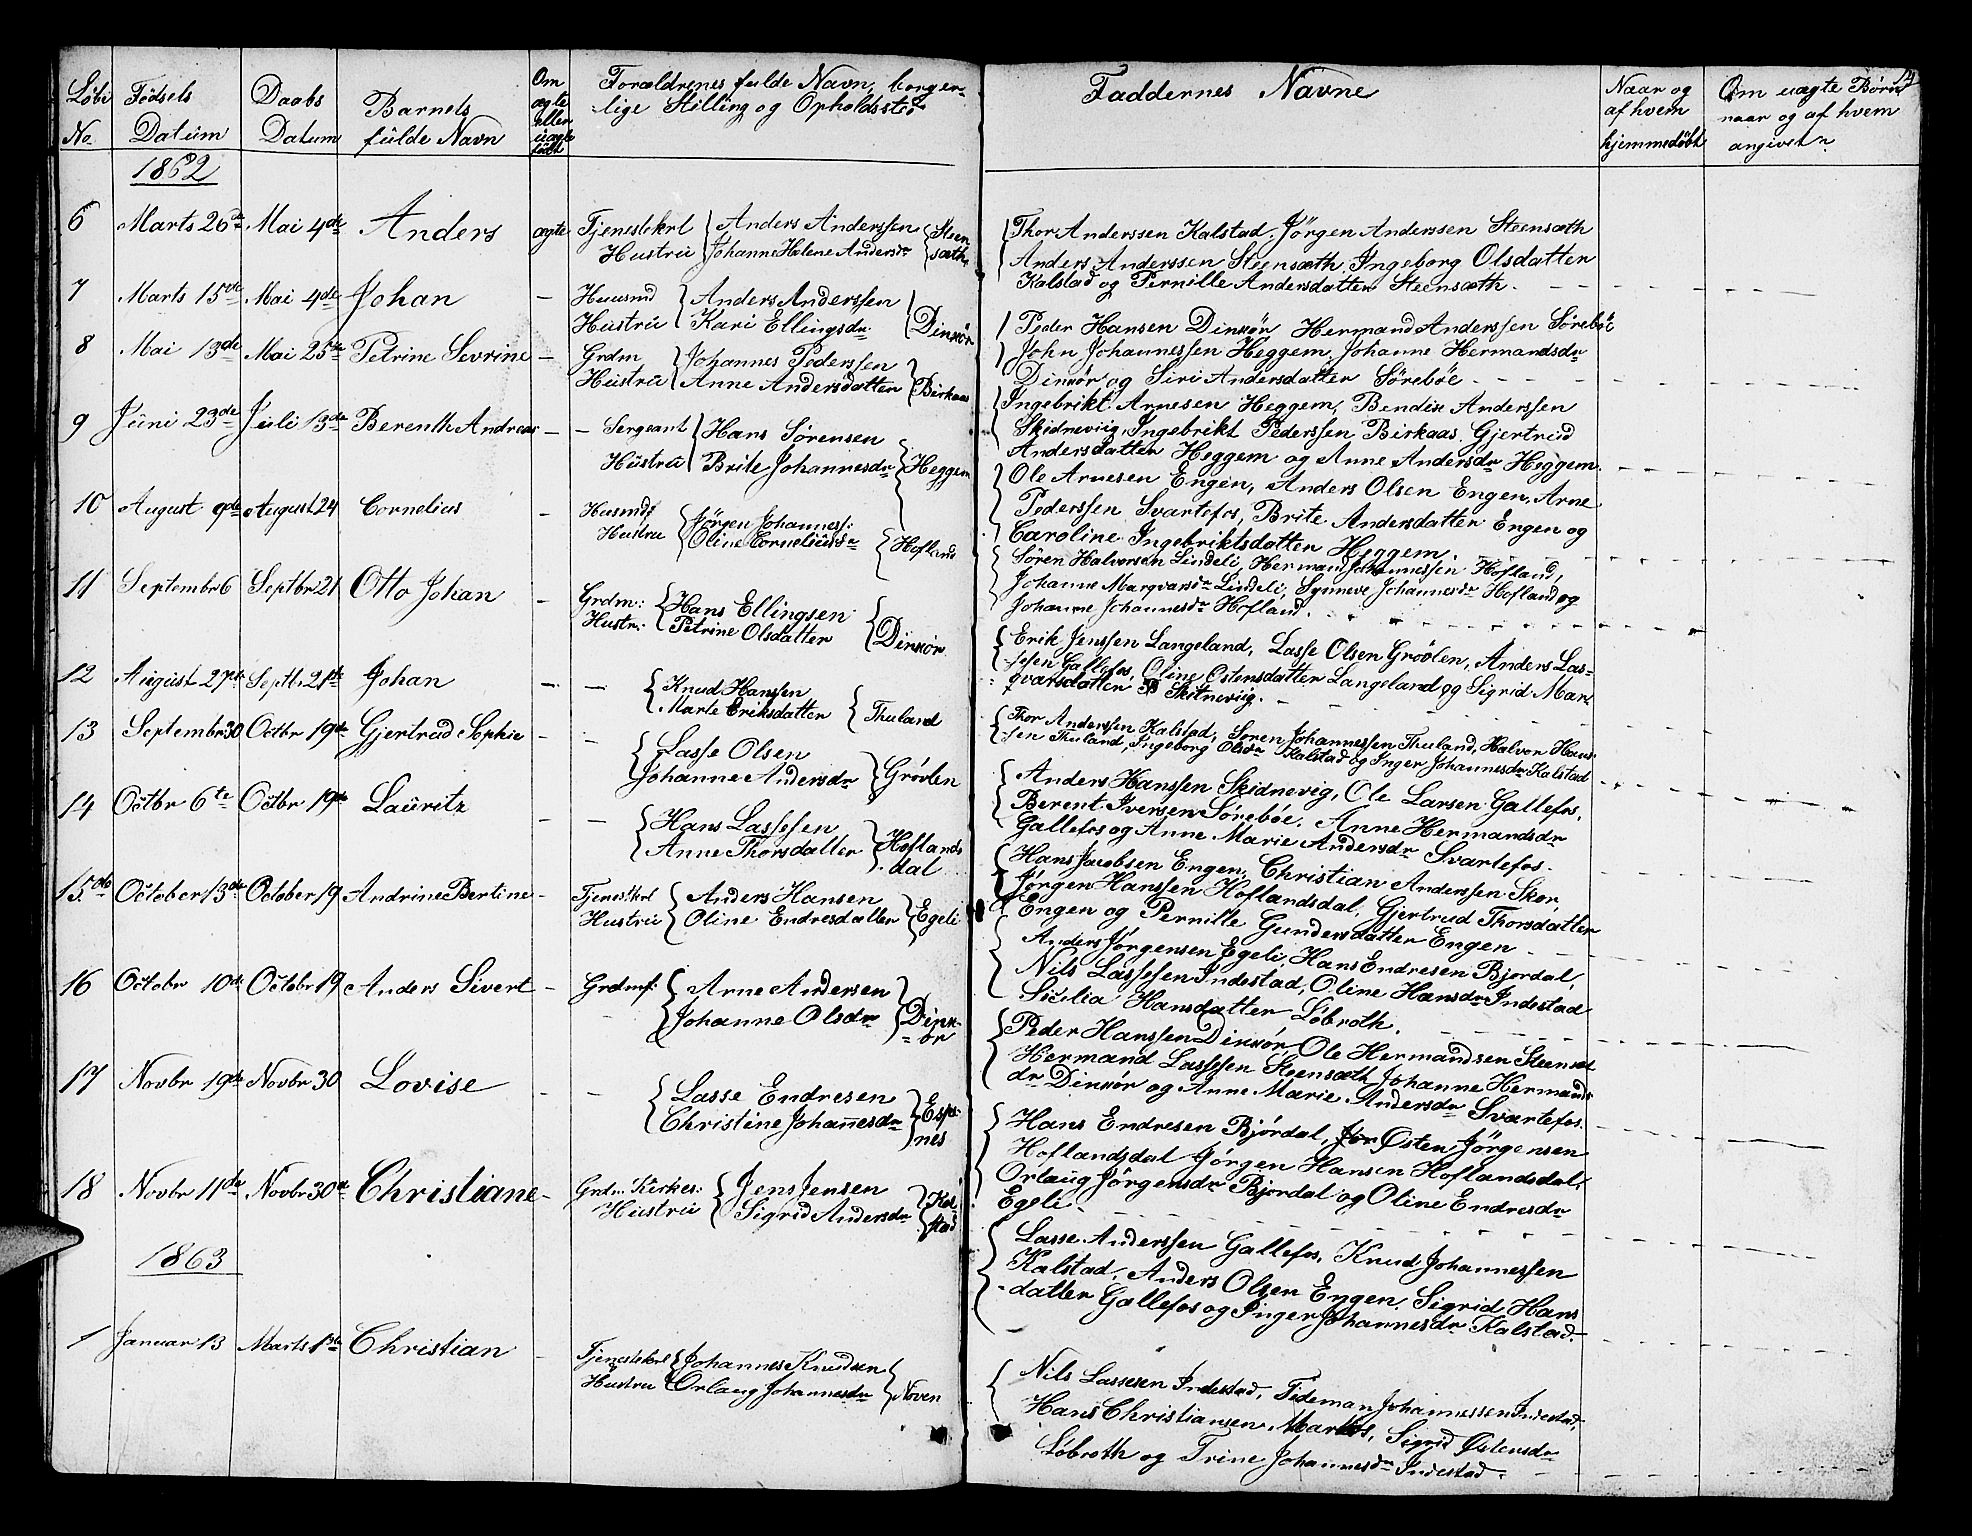 Løbe No.
Födsels Datum
Daabs Datum
Barnets fulde Navn
Om ægte eller uægte født
Forældrenes fulde Navn, borger-
lige Stilling og Opholdssted
Faddernes Navne
Naar og af hvem hjemmedöbt
Om uægte Börn naar og af hvem angivet
1862
6 Marts 26de Mai 4de Anders ægte Tjenestekrl Anders Anderssen Steen
Hustru Johanne Helene Andersdr sæth
Thor Anderssen Kalstad, Jörgen Anderssen Steensæth
Anders Anderssen Steensæth, Ingeborg Olsdatter
Kalstad og Pernille Andersdatter Steensæth.
7 Marts 15de Mai 4de Johan — Huusmd Anders Anderssen
Hustru Kari Ellingsdr Dinkør
Peder Hansen Dinkør Hermand Anderssen Söreböe
John Johannessen Heggem, Johanne Hermandsdr
Dinkör og Siri Andersdatter Sörebøe
8 Mai 13de Mai 25de Petrine Sevrine — Grdm Johannes Pederssen
Hustru Anne Andersdatter Birkaas
Ingebrikt Arnesen Heggem, Anderssen
Skidnevig, Ingebrikt Pederssen Birkaas, Gjertrud
Andersdatter Heggem og Anne Andersdr Heggem.
9 Juni 23de Juli 13de Berenth Andreas — Sergeant Hans Sørensen
Hustru Brite Johannesdr Heggem
Ole Arnesen Engen, Anders Olsen Engen, Arne
Pederssen Svartefos, Brite Andersdatter Engen og
Caroline Ingebriktsdatter Heggem.
10 August 9de August 24 Cornelius — Husmd
Hustru Jörgen Johanness:
Oline Corneliusdr Hofland
Sören Halvorsen Lindeli, Hermand Johannessen Hofland,
Johanne Marqvarsdr Lindeli, Synneve Johannesdr Hofland og
Johanne Johannesdr Hofland.
11 Septembr 6 Septbr 21 Otto Johan — Grdm: Hans Ellingsen
Hustr: Petrine Olsdatter Dinkør
Erik Jenssen Langeland, Lasse Olsen Gröölen, Anders Las-
sesen Gallefos, Oline Ostensdatter Langeland og Sigrid Mar-
qvarsdatter Skitnevig.
12 August 27de Septb. 21de Johan — — Knud Hanssen
Marte Eriksdatter Thuland
Thor Anderssen Kalstad, Sören Johannessen Thuland, Halvor Hans-
sen Thuland, Ingeborg Olsdr Kalstad og Inger Johannesdr Kalstad
13 Septembr 30 Octbr 19de Gjertrud Sophie — — Lasse Olsen
Johanne Andersdr Grövlen
Anders Hanssen Skidnevig, Ole Larsen Gallefos,
Berent Iversen Sørebøe. Anne Hermandsdr
Gallefos og Anne Marie Andersdr Svartefos.
14 Octbr 6te Octbr 19de Lauritz — — Hans Lassesen
Anne Thorsdatter Hoflands
dal
Hans Jacobsen Engen, Christian Anderssen Skor,
Jörgen Hanssen Hoflandsdal, Gjertrud Thorsdatter
Engen og Pernille Gundersdatter Engen
15de October 13de October 19 Andrine Bertine — Tjenestkrl Anders Hansen
Hustru Oline Endresdatter Egeli
Anders Jörgensen Egeli, Hans Endresen Bjordal,
Nils Lassesen Indestad, Oline Hansdr Indestad
Sicilia Hansdatter Löbroth.
16 Octobr 10de Octobr 19 Anders Sivert — Grdmf: Arne Andersen
Johanne Olsdr Dink-
ör
Peder Hanssen Dinkör, Ole Hermandsen Steensæt
Hermand Lassesen Steensæth, Johanne Hermands
dr Dinkör og Anne Marie Andersdr Svartefos.
17 Novbr 19de Novbr 30 Lovise — — Lasse Endresen
Christine Johannesdr Esp-
nes
Hans Endresen Bjórdal, Østen Jörgensen
Hoflandsdal Jörgen Hansen Hoflandsdal,
Orlaug Jörgensdr Bjordal og Oline Endresdr
Egeli
18 Novbr 11de Novbr 30de Christiane — Grdm. Kirkes: Jens Jensen
Hustru Sigrid Andersdr Kal-
stad
Lasse Anderssen Gallefos, Knud Johannessen
Kalstad, Anders Olsen Engen, Sigrid Hans
datter Gallefos og Inger Johannesdr Kalstad.
1863
1 Januar 13 Marts 1ste Christian — Tjenestekrl Johannes Knudsen
Hustru Orlaug Johannesdr Noven
Nils Lassesen Indestad, Tideman Johannessen Indestad,
Hans Christiansen Markos, Sigrid Østensdr
Löbroth og Trine Johannesdr Indestad.